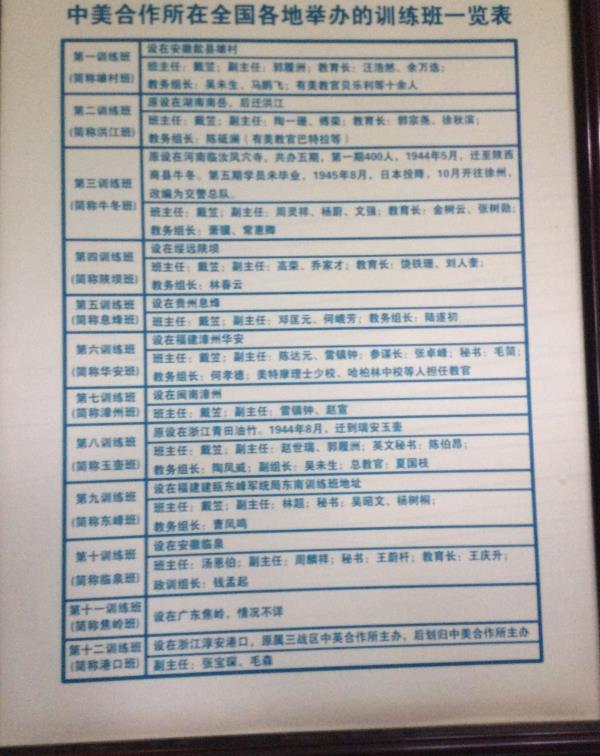 中美合作所在全国各地举办的训练班一览表
第一训练班
(简称雄村班)
设在安徽歙县雄村
班主任：戴笠；副主任：郭履洲；教育长：汪浩然、余万选；
教务组长：吴未生、马鹏飞；有美教官贝乐利等十余人
第二训练班
(简称洪江班)
原设在湖南南岳，后迁洪江
班主任：戴笠；副主任：陶一珊、傅荣；教育长：郭宗尧、徐秋滨；
教务组长：陈砥澜（有美教官巴特拉等）
第三训练班
(简称牛冬班)
原设在河南临汝凤穴寺，共办五期，第一期400人，1944年5月，迁至陕西
商县牛冬。第五期学员未毕业，1945年8月，日本投降，10月开往徐州，
改编为交警总队。
班主任：戴笠；副主任：周灵祥、杨蔚、文强；教育长：金树云、张树勋；
教务组长：萧骥、常惠卿
第四训练班
(简称陕坝班)
设在绥远陕坝
班主任：戴笠；副主任：高荣、乔家才；教育长：饶铁珊、刘人奎；
教务组长：林春云
第五训练班
(简称息烽班)
设在贵州息烽
班主任：戴笠；副主任：邓匡元、何峨芳；教务组长：陆遂初
第六训练班
(简称华安班)
设在福建漳州华安
班主任：戴笠；副主任：陈达元、雷镇钟；参谋长：张卓峰；秘书：毛简；
教务组长：何孝德；美特摩理士少校、哈柏林中校等人担任教官
第七训练班
(简称漳州班)
设在闽南漳州
班主任：戴笠；副主任：雷镇钟、赵宣
第八训练班
(简称玉壶班)
原设在浙江青田油竹。1944年8月，迁到瑞安玉壶
班主任：戴笠；副主任：赵世瑞、郭履洲；英文秘书：陈伯昂；
教务组长：陶凤威；副组长：吴未生；总教官：夏国枝
第九训练班
(简称东峰班)
设在福建建瓯东峰军统局东南训练班地址
班主任：戴笠；副主任：林超；秘书：吴昭文、杨树桐；
教务组长：曹凤鸣
第十训练班
(简称临泉班)
设在安徽临泉
班主任：汤恩伯；副主任：周麟祥；秘书：王蔚杆；教育长：王庆升；
政训组长：钱孟起
第十一训练班
(简称焦岭班)
设在广东焦岭，情况不详
第十二训练班
(简称港口班)
设在浙江淳安港口，原属三战区中英合作所主办，后划归中美合作所主办
副主任：张宝琛、毛森